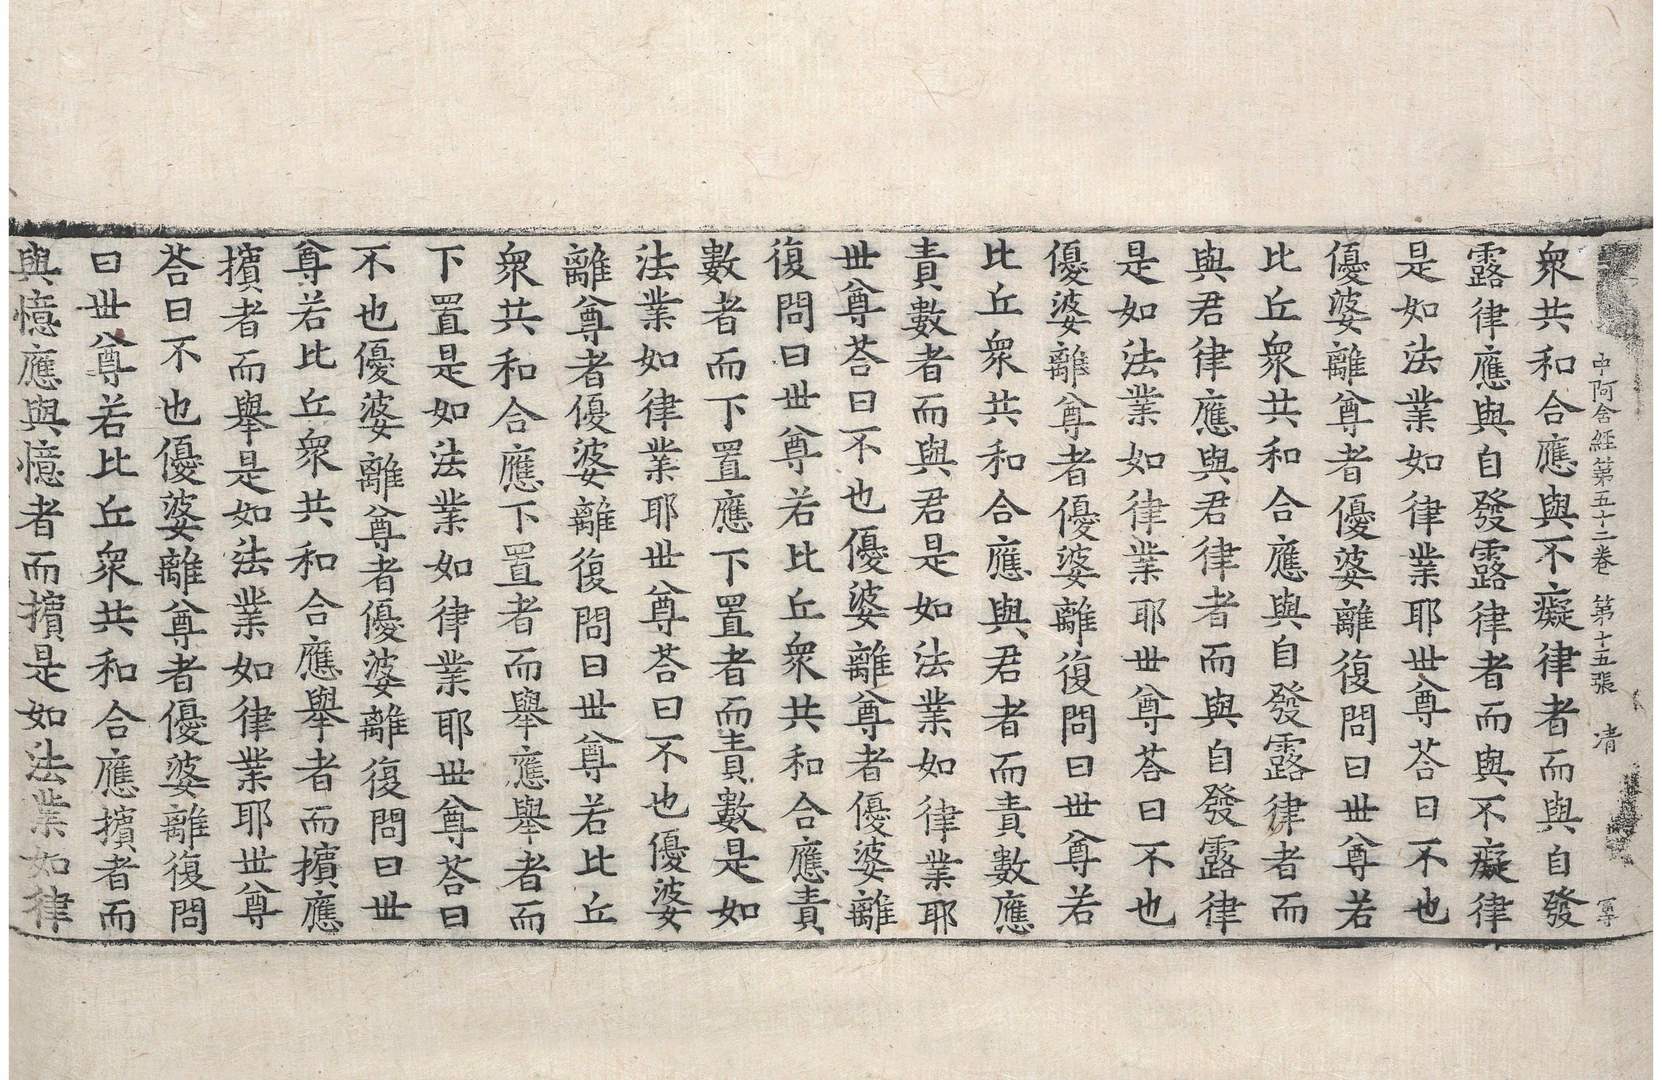 中阿含經第五十二卷 第十五張 凊
衆共和合應與不癡律者而與自發
露律應與自發露律者而與不癡律
是如法業如律業耶世尊荅曰不也
優婆離尊者優婆離復問曰世尊若
比丘衆共和合應與自發露律者而
與君律應與君律者而與自發露律
是如法業如律業耶世尊荅曰不也
優婆離尊者優婆離復問曰世尊若
比丘衆共和合應與君者而責數應
責數者而與君是如法業如律業耶
世尊荅曰不也優婆離尊者優婆離
復問曰世尊若比丘衆共和合應責
數者而下置應下置者而責數是如
法業如律業耶世尊荅曰不也優婆
離尊者優婆離復問曰世尊若比丘
衆共和合應下置者而舉應舉者而
下置是如法業如律業耶世尊荅曰
不也優婆離尊者優婆離復問曰世
尊若比丘衆共和合應舉者而擯應
擯者而舉是如法業如律業耶世尊
荅曰不也優婆離尊者優婆離復問
曰世尊若比丘衆共和合應擯者而
與憶應與憶者而擯是如法業如律